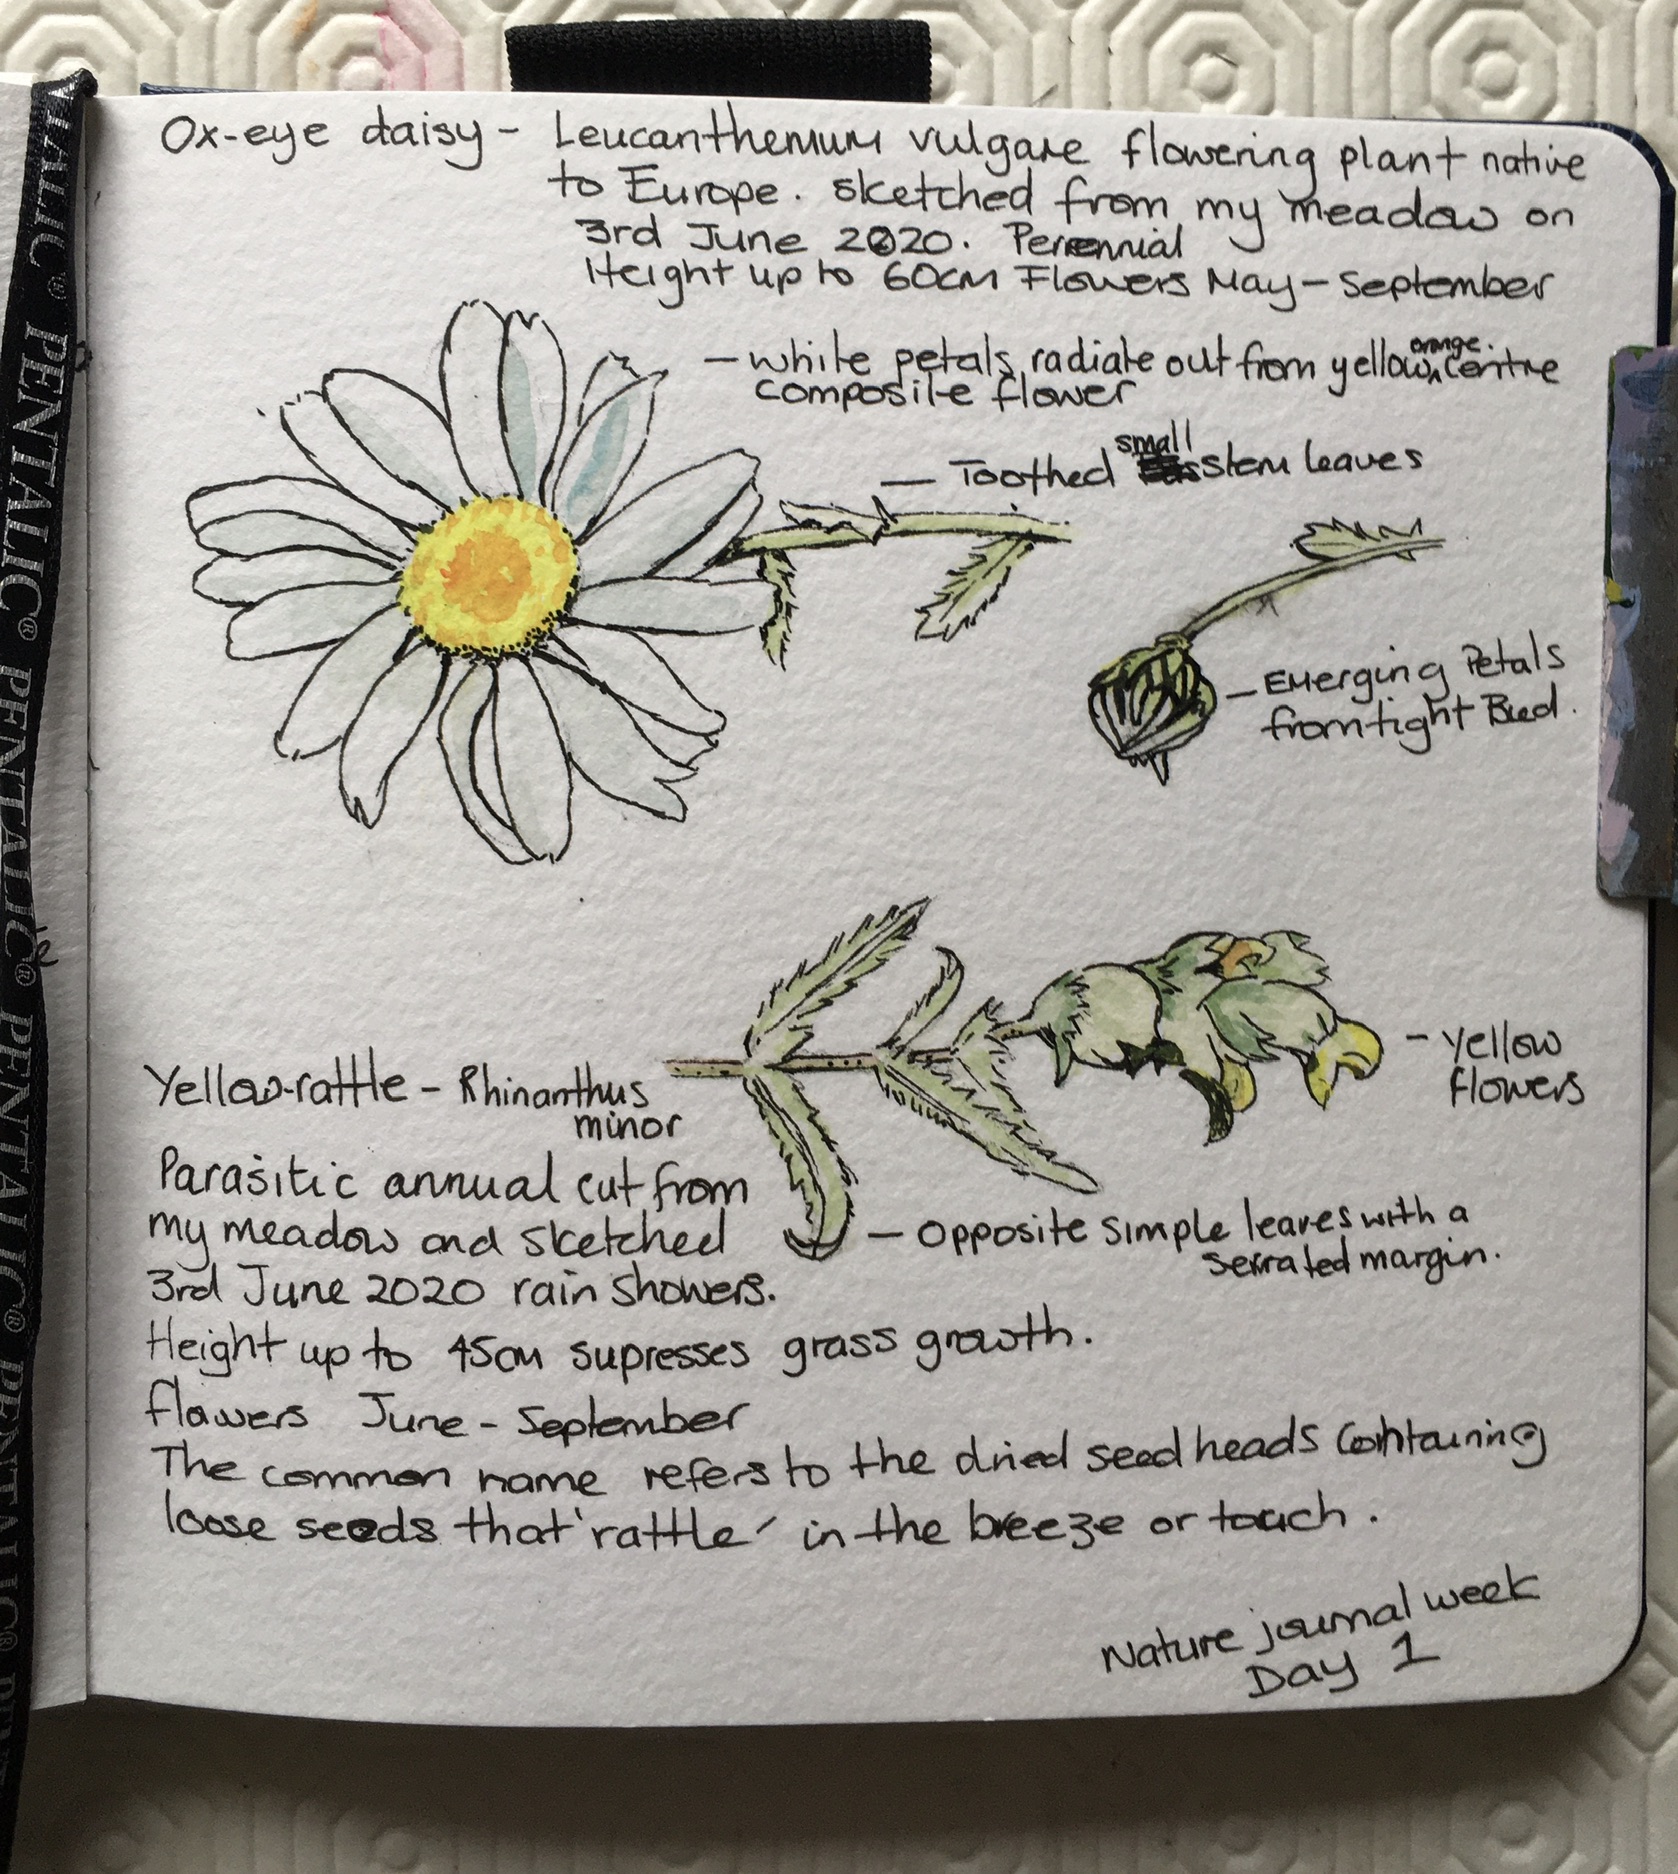 Ox-eye daisy - Leucanthemum vulgare flowering plant native
to Europe. sketched from my meadow on
3rd June 2020. Perennial
Height up to 60cm Flowers May - September
- white petals radiate out from yellow orange. centre
composite flower
- Toothed small stem leaves
- Emerging Petals
from tight Bud.
- yellow
flowers
Yellow-rattle - Rhinanthus
minor
Parasitic annual cut from
my meadow and sketched
3rd June 2020 rain showers.
- Opposite simple leaves with a
serrated margin.
Height up to 45cm supresses grass growth.
flowers June - September
The common name refers to the dried seed heads containing
loose seeds that 'rattle' in the breeze or touch.
Nature journal week
Day 1
PENTALIC® PENTALIC® PENTALIC® PENTALIC® PENTALIC®